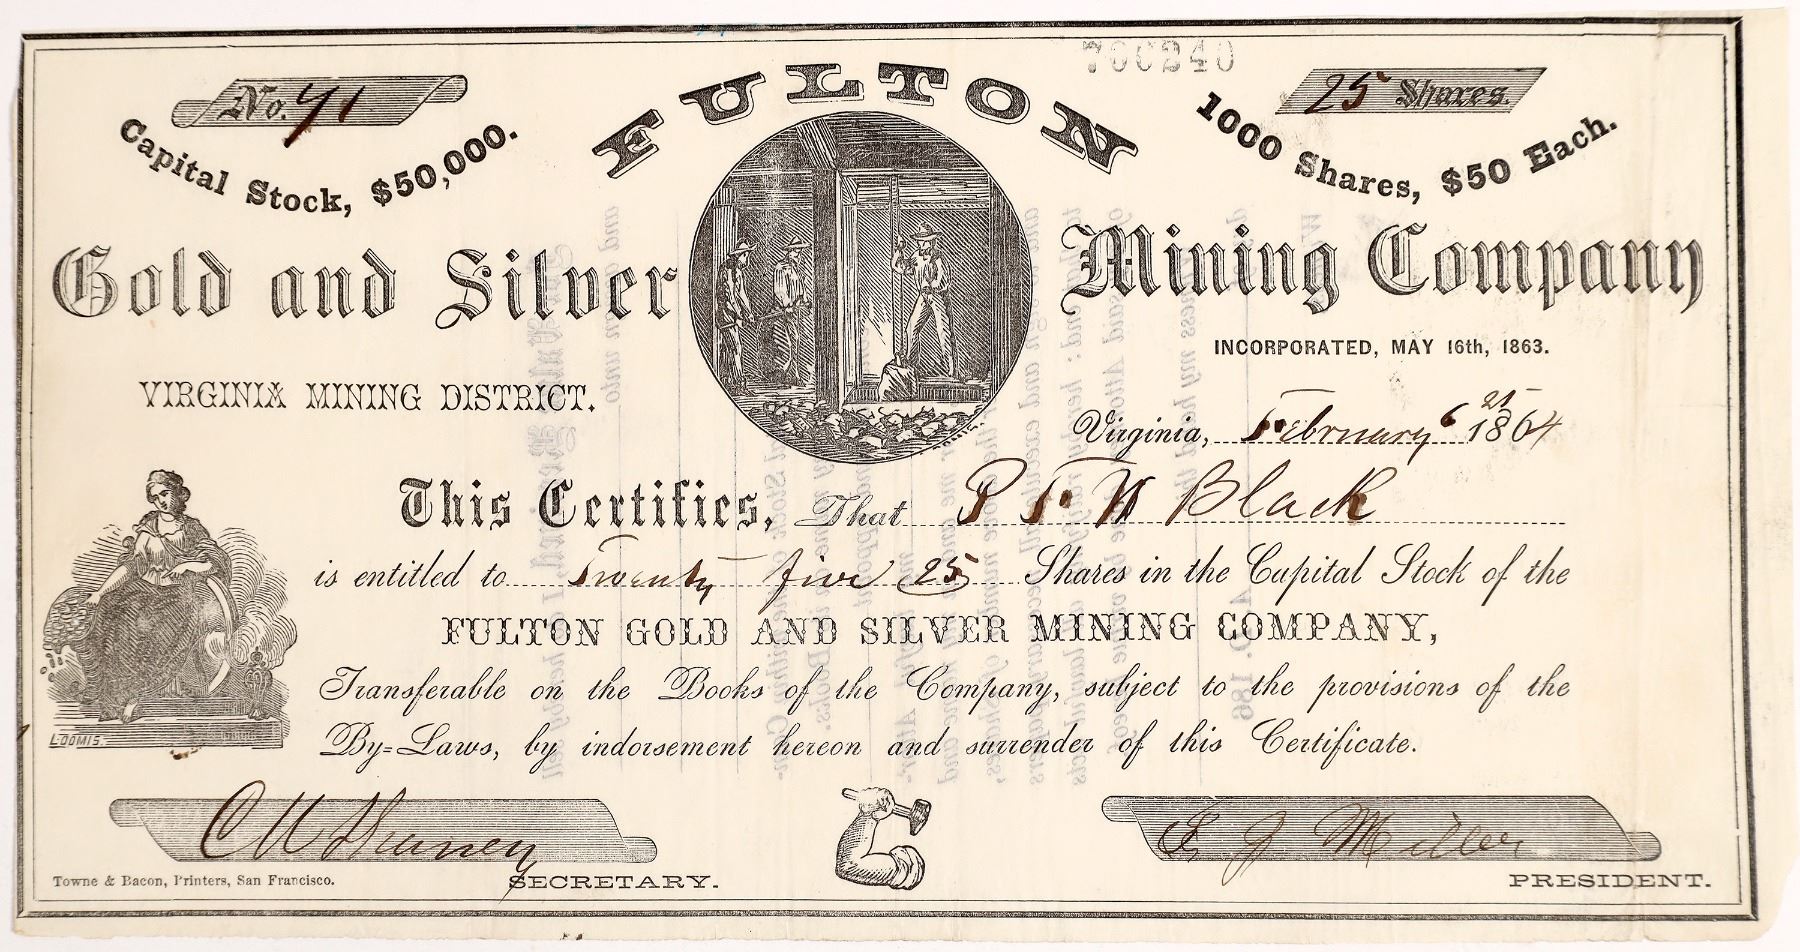 706240
No. 41
25 Shares.
Capital Stock, $50,000.
FULTON
1000 Shares, $50 Each.
Gold and Silver Mining Company
INCORPORATED, MAY 16th, 1863.
VIRGINIA MINING DISTRICT.
Virginia, February 6 1864
This Certifies, That P F W Black
is entitled to Twenty five 25 Shares in the Capital Stock of the
FULTON GOLD AND SILVER MINING COMPANY,
Transferable on the Books of the Company, subject to the provisions of the
By=Laws, by indorsement hereon and surrender of this Certificate.
LOOMIS.
C W
Miller
Towne & Bacon, Printers, San Francisco.
SECRETARY.
PRESIDENT.